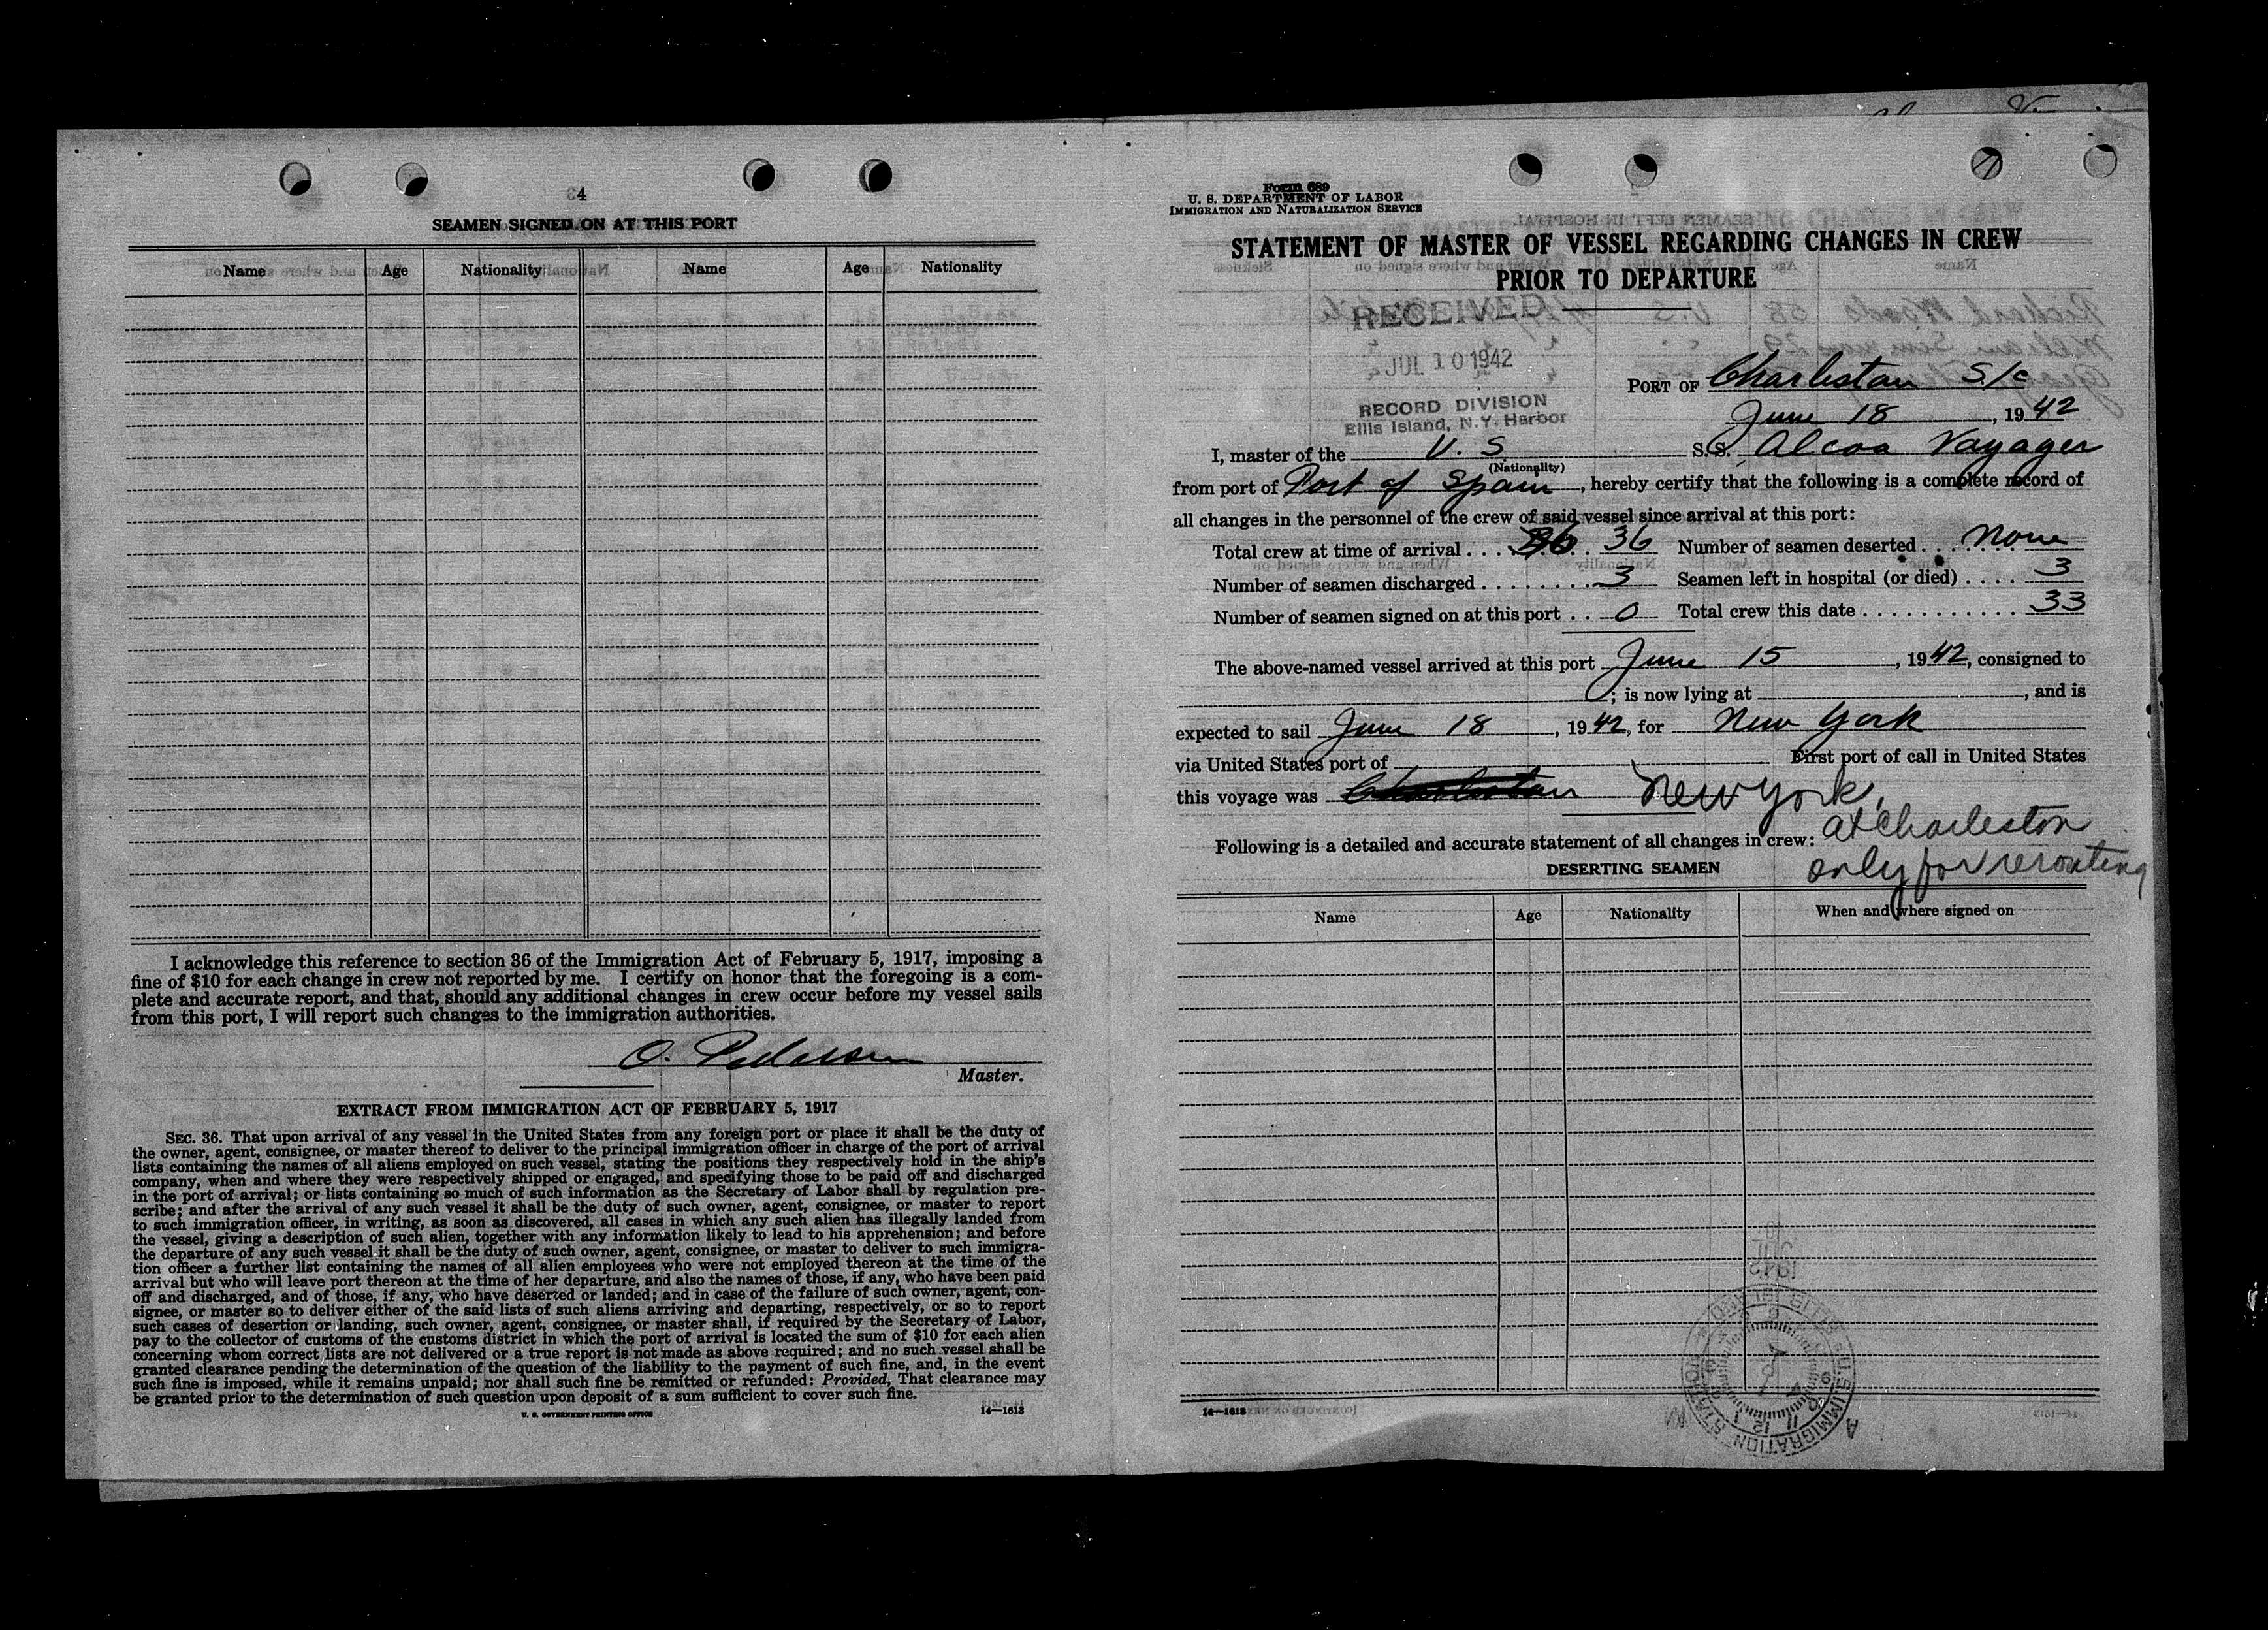 4
SEAMEN SIGNED ON AT THIS PORT
Name Age Nationality Name Age Nationality
I acknowledge this reference to section 36 of the Immigration Act of February 5, 1917, imposing a
fine of $10 for each change in crew not reported by me. I certify on honor that the foregoing is a com-
plete and accurate report, and that, should any additional changes in crew occur before my vessel sails
from this port, I will report such changes to the immigration authorities.
O. Pedersen
Master.
EXTRACT FROM IMMIGRATION ACT OF FEBRUARY 5, 1917
SEC. 36. That upon arrival of any vessel in the United States from any foreign port or place it shall be the duty of
the owner, agent, consignee, or master thereof to deliver to the principal immigration officer in charge of the port of arrival
lists containing the names of all aliens employed on such vessel, stating the positions they respectively hold in the ship's
company, when and where they were respectively shipped or engaged, and specifying those to be paid off and discharged
in the port of arrival; or lists containing so much of such information as the Secretary of Labor shall by regulation pre-
scribe; and after the arrival of any such vessel it shall be the duty of such owner, agent, consignee, or master to report
to such immigration officer, in writing, as soon as discovered, all cases in which any such alien has illegally landed from
the vessel, giving a description of such alien, together with any information likely to lead to his apprehension; and before
the departure of any such vessel it shall be the duty of such owner, agent, consignee, or master to deliver to such immigra-
tion officer a further list containing the names of all alien employees who were not employed thereon at the time of the
arrival but who will leave port thereon at the time of her departure, and also the names of those, if any, who have been paid
off and discharged, and of those, if any, who have deserted or landed; and in case of the failure of such owner, agent, con-
signee, or master so to deliver either of the said lists of such aliens arriving and departing, respectively, or so to report
such cases of desertion or landing, such owner, agent, consignee, or master shall, if required by the Secretary of Labor,
pay to the collector of customs of the customs district in which the port of arrival is located the sum of $10 for each alien
concerning whom correct lists are not delivered or a true report is not made as above required; and no such vessel shall be
granted clearance pending the determination of the question of the liability to the payment of such fine, and, in the event
such fine is imposed, while it remains unpaid; nor shall such fine be remitted or refunded: Provided, That clearance may
be granted prior to the determination of such question upon deposit of a sum sufficient to cover such fine.
U. S. GOVERNMENT PRINTING OFFICE 14—1613
Form 689
U. S. DEPARTMENT OF LABOR
IMMIGRATION AND NATURALIZATION SERVICE
STATEMENT OF MASTER OF VESSEL REGARDING CHANGES IN CREW
PRIOR TO DEPARTURE
RECEIVED
JUL 10 1942
RECORD DIVISION
Ellis Island, N.Y. Harbor
PORT OF Charleston S/c
June 18, 1942
I, master of the U. S. S.S. Alcoa Voyager
(Nationality)
from port of Port of Spain, hereby certify that the following is a complete record of
all changes in the personnel of the crew of said vessel since arrival at this port:
Total crew at time of arrival . . . 36 36 Number of seamen deserted . . . None
Number of seamen discharged . . . . . . . . 3 Seamen left in hospital (or died) . . . . 3
Number of seamen signed on at this port . . 0 Total crew this date . . . . . . . . . . . . 33
The above-named vessel arrived at this port June 15, 1942, consigned to
; is now lying at , and is
expected to sail June 18, 1942, for New York
via United States port of First port of call in United States
this voyage was Charleston New York,
at Charleston
only for rerouting
Following is a detailed and accurate statement of all changes in crew:
DESERTING SEAMEN
Name Age Nationality When and where signed on
14—1613
U.S. IMMIGRATION STATION